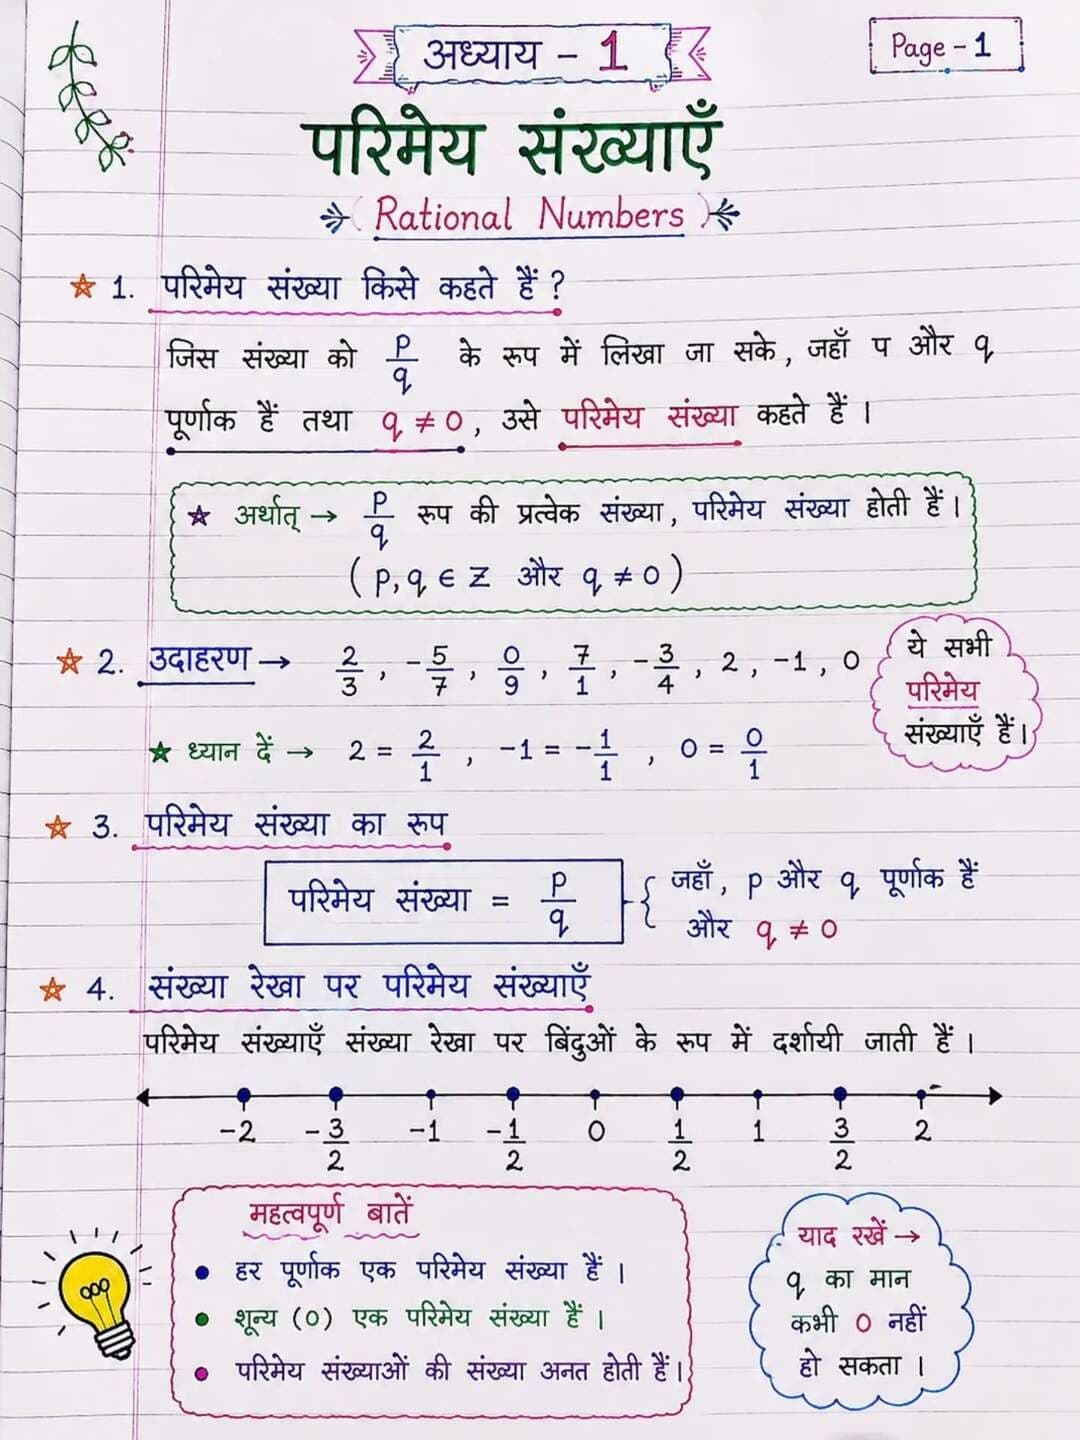 अध्याय - 1
Page - 1
परिमेय संख्याएँ
(Rational Numbers)
1. परिमेय संख्या किसे कहते हैं ?
जिस संख्या को p/q के रूप में लिखा जा सके, जहाँ प और q
पूर्णाक हैं तथा q ≠ 0, उसे परिमेय संख्या कहते हैं ।
अर्थात् → p/q रूप की प्रत्वेक संख्या, परिमेय संख्या होती हैं ।
( p, q ∈ Z और q ≠ 0 )
2. उदाहरण → 2/3 , -5/7 , 0/9 , 7/1 , -3/4 , 2 , -1 , 0
ये सभी
परिमेय
संख्याएँ हैं।
ध्यान दें → 2 = 2/1 , -1 = -1/1 , 0 = 0/1
3. परिमेय संख्या का रूप
परिमेय संख्या = p/q { जहाँ, p और q पूर्णाक हैं
और q ≠ 0
4. संख्या रेखा पर परिमेय संख्याएँ
परिमेय संख्याएँ संख्या रेखा पर बिंदुओं के रूप में दर्शायी जाती हैं ।
-2 -3/2 -1 -1/2 0 1/2 1 3/2 2
महत्वपूर्ण बातें
• हर पूर्णाक एक परिमेय संख्या हैं ।
• शून्य (0) एक परिमेय संख्या हैं ।
• परिमेय संख्याओं की संख्या अनत होती हैं।
याद रखें →
q का मान
कभी 0 नहीं
हो सकता ।